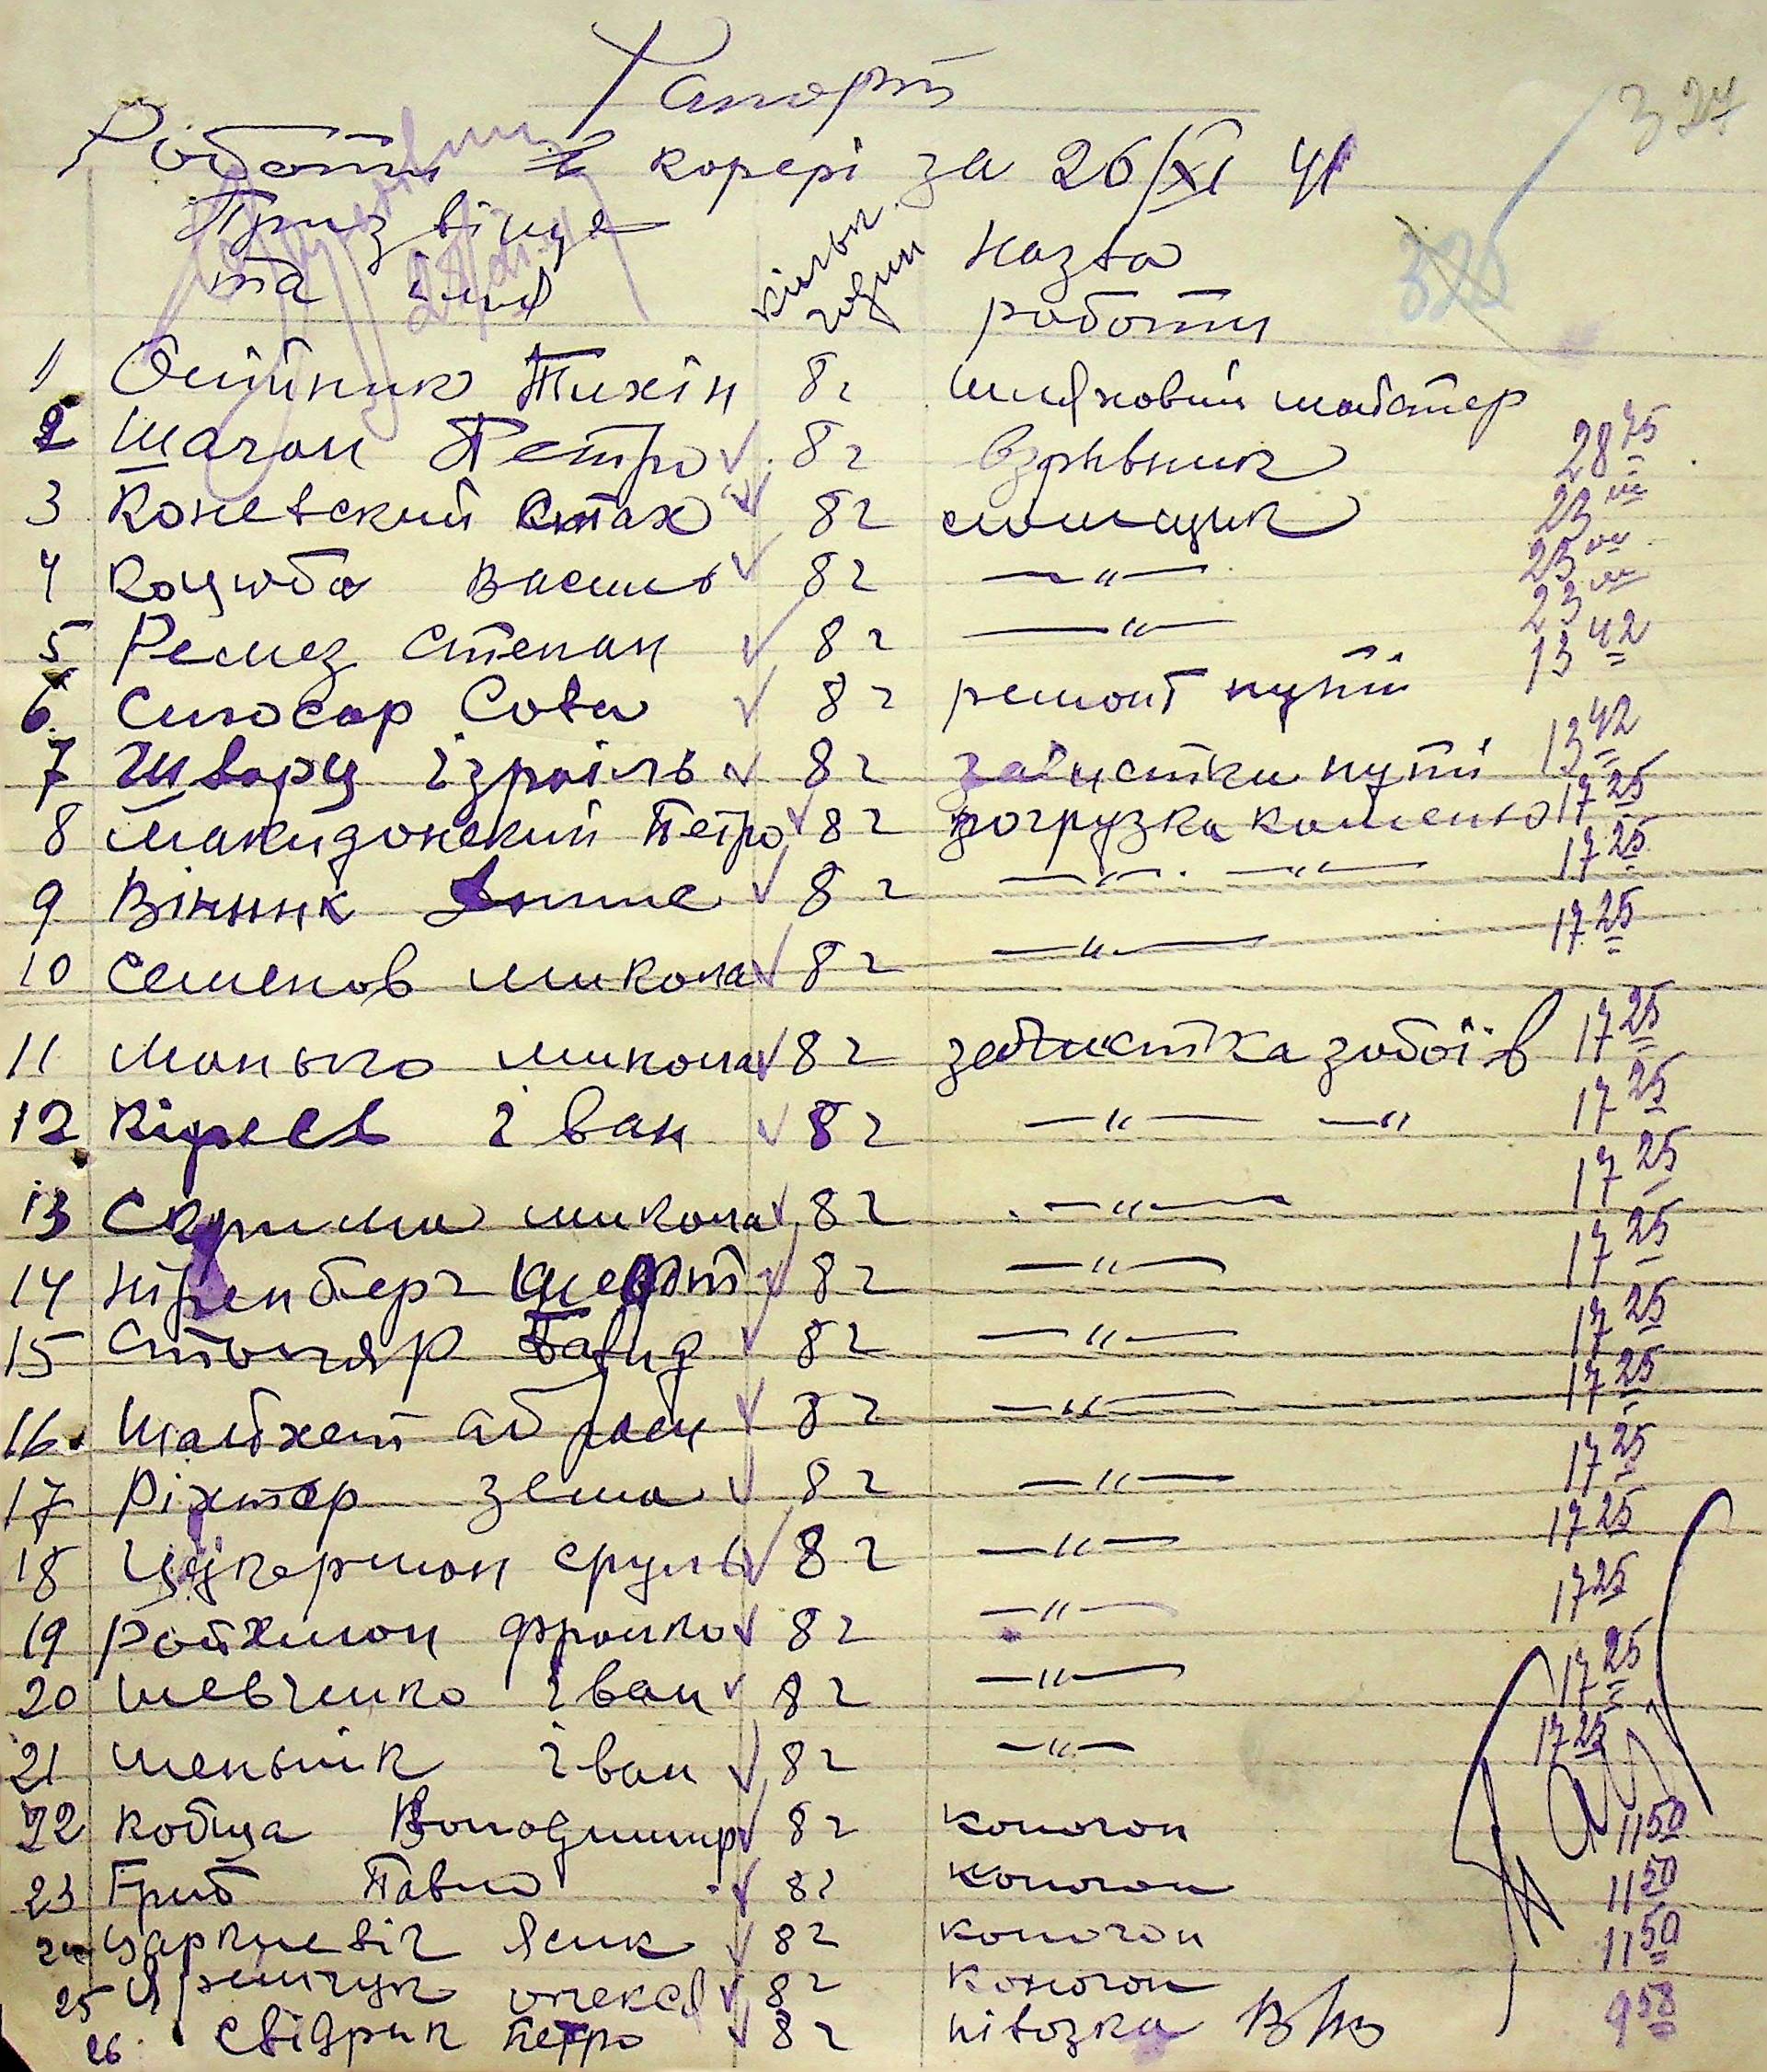 Рапорт
324
Роботи в корері за 26/XI 41
Призвіще та імя кільк годин назва роботи
325
1 Олійник Тихін 8 г шляховий майстер
2 Шаган Петро 8 г взривник 28 75
3 Коневский Стах 8 г ломщик 23
4 Коцюба Василь 8 г —"— 23
5 Ремез Степан 8 г —"— 23
6 Слюсар Сова 8 г ремонт путі 13 42
7 Шварц Ізраіль 8 г зачистка путі 13 42
8 Макидонский Петро 8 г погрузка каменю 17 25
9 Вінник 8 г —"— —"— 17 25
10 Семенов Микола 8 г —"— 17 25
11 Манько Микола 8 г зачистка забоїв 17 25
12 Кіреєв Іван 8 г —"— —" 17 25
13 Скрима Микола 8 г —"— 17 25
14 8 г —"— 17 25
15 Столяр Давид 8 г —"— 17 25
16 Шальхет Абрам 8 г —"— 17 25
17 Ріхтер Зема 8 г —"— 17 25
18 Цукерман Сруль 8 г —"— 17 25
19 Ройхман Фроико 8 г —"— 17 25
20 Шевченко Іван 8 г —"— 17 25
21 Меньшік Іван 8 г —"— 17 25
22 Кобца Володимир 8 г коногон 11 50
23 Гриб Павло 8 г коногон 11 50
24 Царкиевіч Ясик 8 г коногон 11 50
25 Яремчук Олекса 8 г коногон
26 Свідрик Петро 8 г півозка 9 58